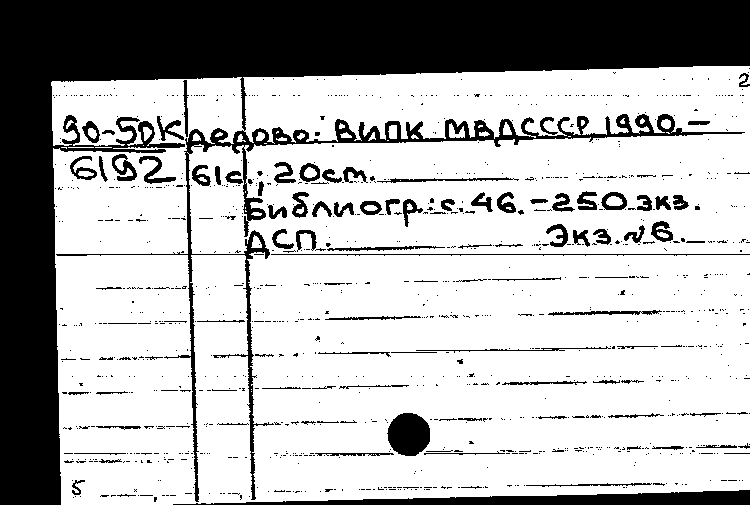 2
90-5DK дедово: ВИПК МВДСССР, 1990.–
6192 61с.; 20см.
Библиогр.: с. 46. – 250 экз.
ДСП. Экз. № 6.
5